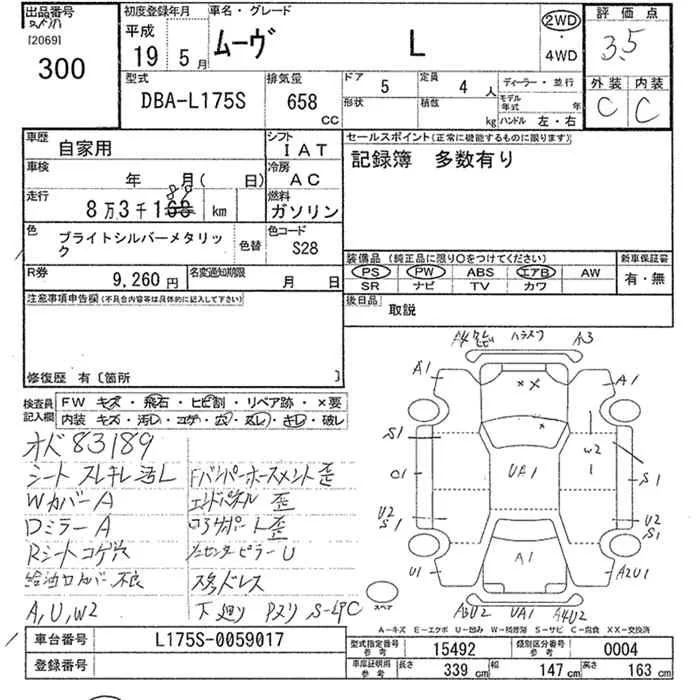 出品番号
[2069]
300
初度登録年月
平成
19 5月
車名・グレード
ムーヴ L
2WD
・
4WD
評価点
3.5
外装 内装
C C
型式
DBA-L175S
排気量
658
CC
ドア 5
形状
定員 4 人
積載 kg
ディーラー・並行
モデル年式 年
ハンドル 左・右
車歴
自家用
シフト
IAT
車検
年 月( 日)
冷房
AC
走行
8万3千188 km
燃料
ガソリン
色
ブライトシルバーメタリック
色替
色コード
S28
R券
9,260円
名変通知期限
月 日
セールスポイント(正常に機能するものに限ります)
記録簿 多数有り
装備品(純正品に限り○をつけてください)
PS PW ABS エアB AW
SR ナビ TV カワ
新車保証書
有・無
後日品
取説
注意事項申告欄(不具合内容等は具体的に記入して下さい)
修復歴 有〔箇所 〕
検査員
記入欄
FW キズ・飛石・ヒビ割・リペア跡・×要
内装 キズ・汚レ・コゲ・穴・スレ・キレ・破レ
オド 83189
シート スレキレ汚レ
Wカバー A
Dミラー A
Rシートコゲ穴
不良
A, U, W2
Fバンパーホースメント歪
エンドパネル 歪
コアサポート歪
センターピラー U
スタッドレス
下廻り Pスリ S-
ハラスリ
A3
A1
A1
S1
W2
C1
UA1
S1
U2
S1
U2
S1
U1
A1
A2U1
スペア
A3U2 UA1 A4U2
A-キズ E-エクボ U-凹み W-補修跡 S-サビ C-腐食 XX-交換済
車台番号
L175S-0059017
登録番号
型式指定番号
参考
15492
類別区分番号
参考
0004
車庫証明用
参考
長さ 339 cm 幅 147 cm 高さ 163 cm